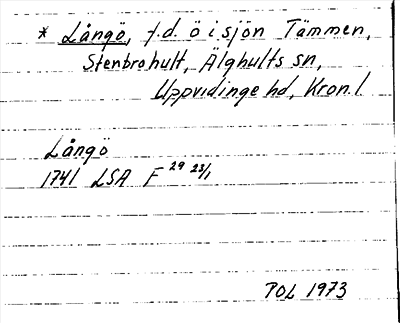 * Långö, f.d. ö i sjön Tämmen,
Stenbrohult, Älghults sn,
Uppvidinge hd, Kron. l
Långö
1741 LSA F 29 23/1
POL 1973